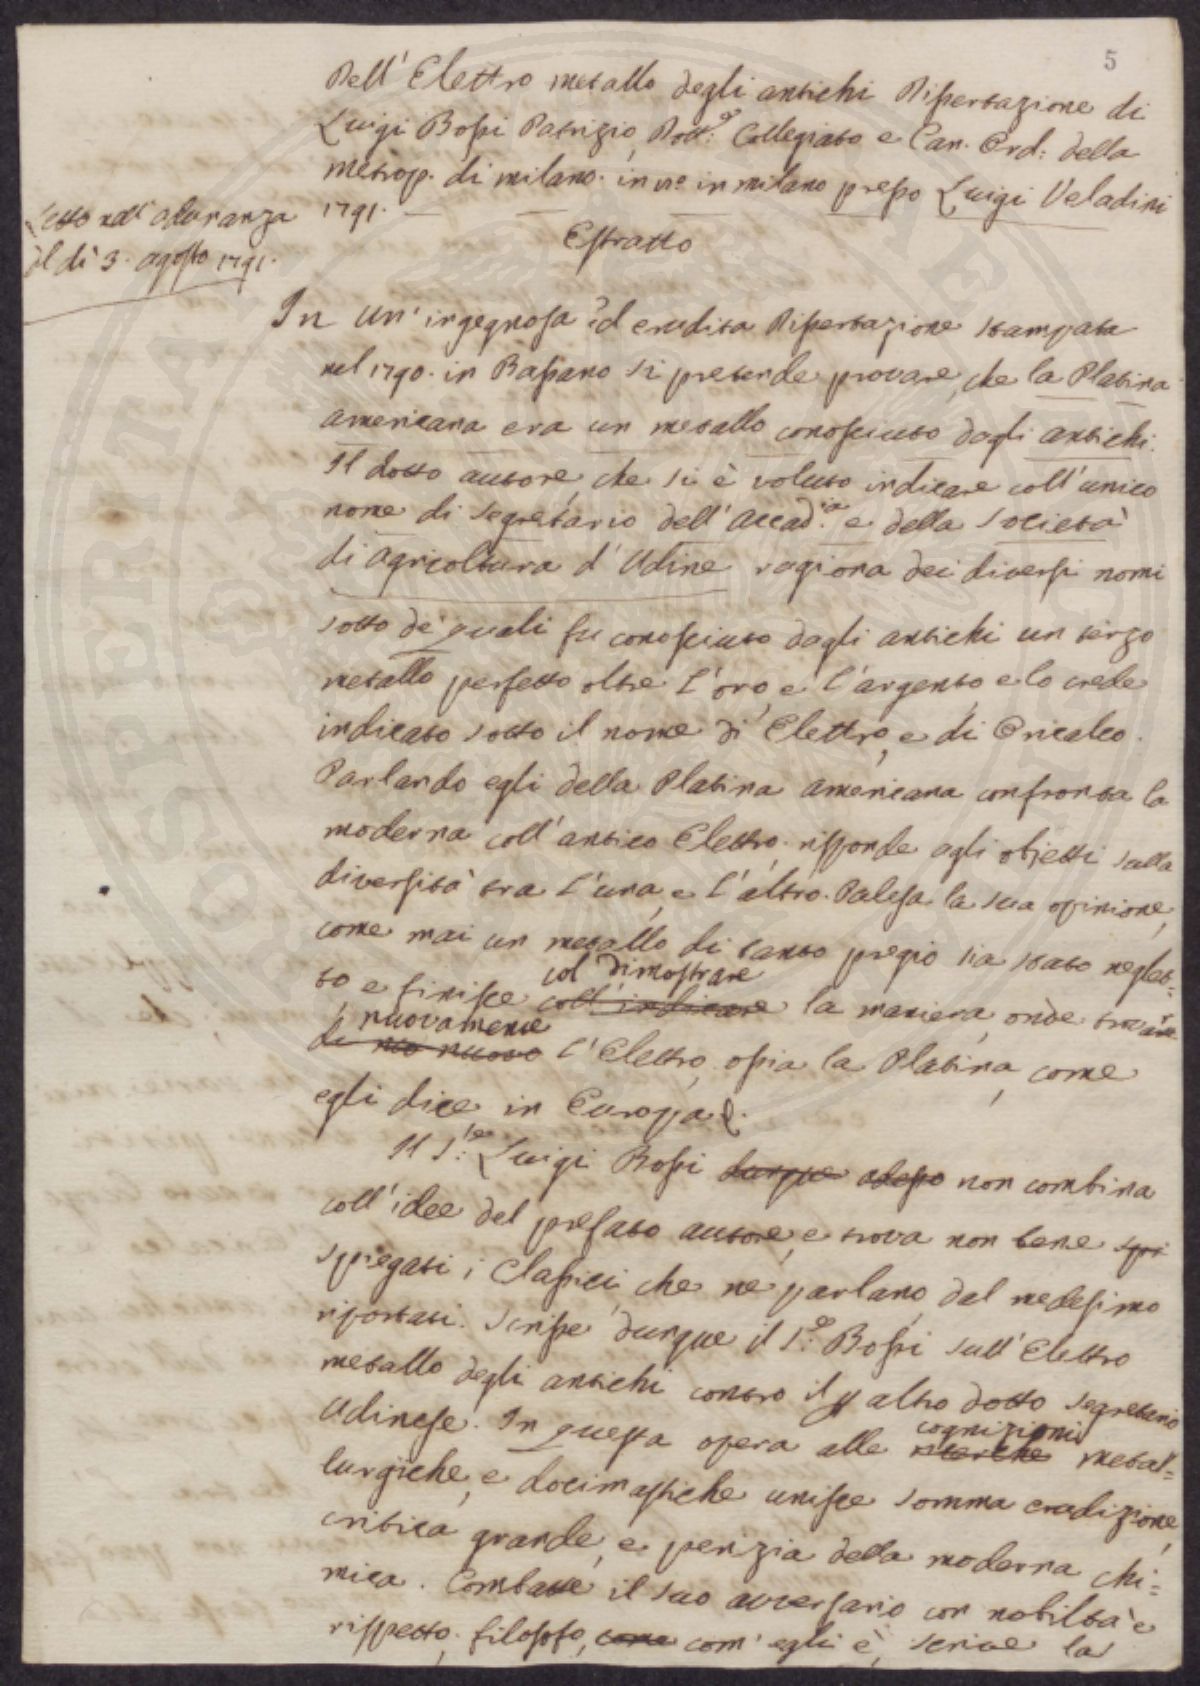 5
Dell'Elettro metallo degli antichi Dissertazione di
Luigi Bossi Patrizio, Dott.e Collegiato e Can. Ord: della
metrop. di milano. in 4.o in milano presso Luigi Veladini
1791.
Letto nell'adunanza
il dì 3. agosto 1791.
Estratto
In un'ingegnosa ed erudita Dissertazione stampata
nel 1790. in Bassano si pretende provare, che la Platina
americana era un metallo conosciuto dagli antichi.
Il dotto autore, che si è voluto indicare coll'unico
nome di segretario dell'Accad.ia e della società
di agricoltura d'Udine ragiona dei diversi nomi
sotto de' quali fu conosciuto dagli antichi un terzo
metallo perfetto oltre l'oro, e l'argento, e lo crede
indicato sotto il nome di Elettro, e di Oricalco.
Parlando egli della Platina americana confronta la
moderna coll'antico Elettro, risponde agli objetti sulla
diversità tra l'una, e l'altro. Palesa la sua opinione,
come mai un metallo di tanto pregio sia stato neglet=
to e finisce coll'indicare col dimostrare la maniera, onde trovare
di nuovo nuovamente l'Elettro, ossia la Platina, come
egli dice in Europa &.
Il S.re Luigi Bossi dunque adesso non combina
coll'idee del prefato autore, e trova non bene spi
spiegati i Classici che ne parlano, dal medesimo
riportati. Scrisse dunque il S.e Bossi sull'Elettro
metallo degli antichi contro il altro dotto segretario
Udinese. In questa opera alle ricerche cognizioni metal=
lurgiche, e docimastiche unisce somma erudizione,
critica grande, e perizia della moderna chi=
mica. Combatte il suo avversario con nobiltà e
rispetto, filosofo, come com'egli è, scrive la